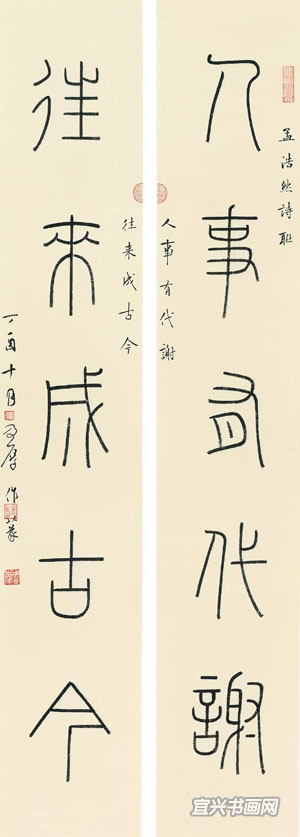 人事有代謝
孟浩然詩聯
人事有代謝
往来成古今
往來成古今
丁酉十月
作篆
宜兴书画网